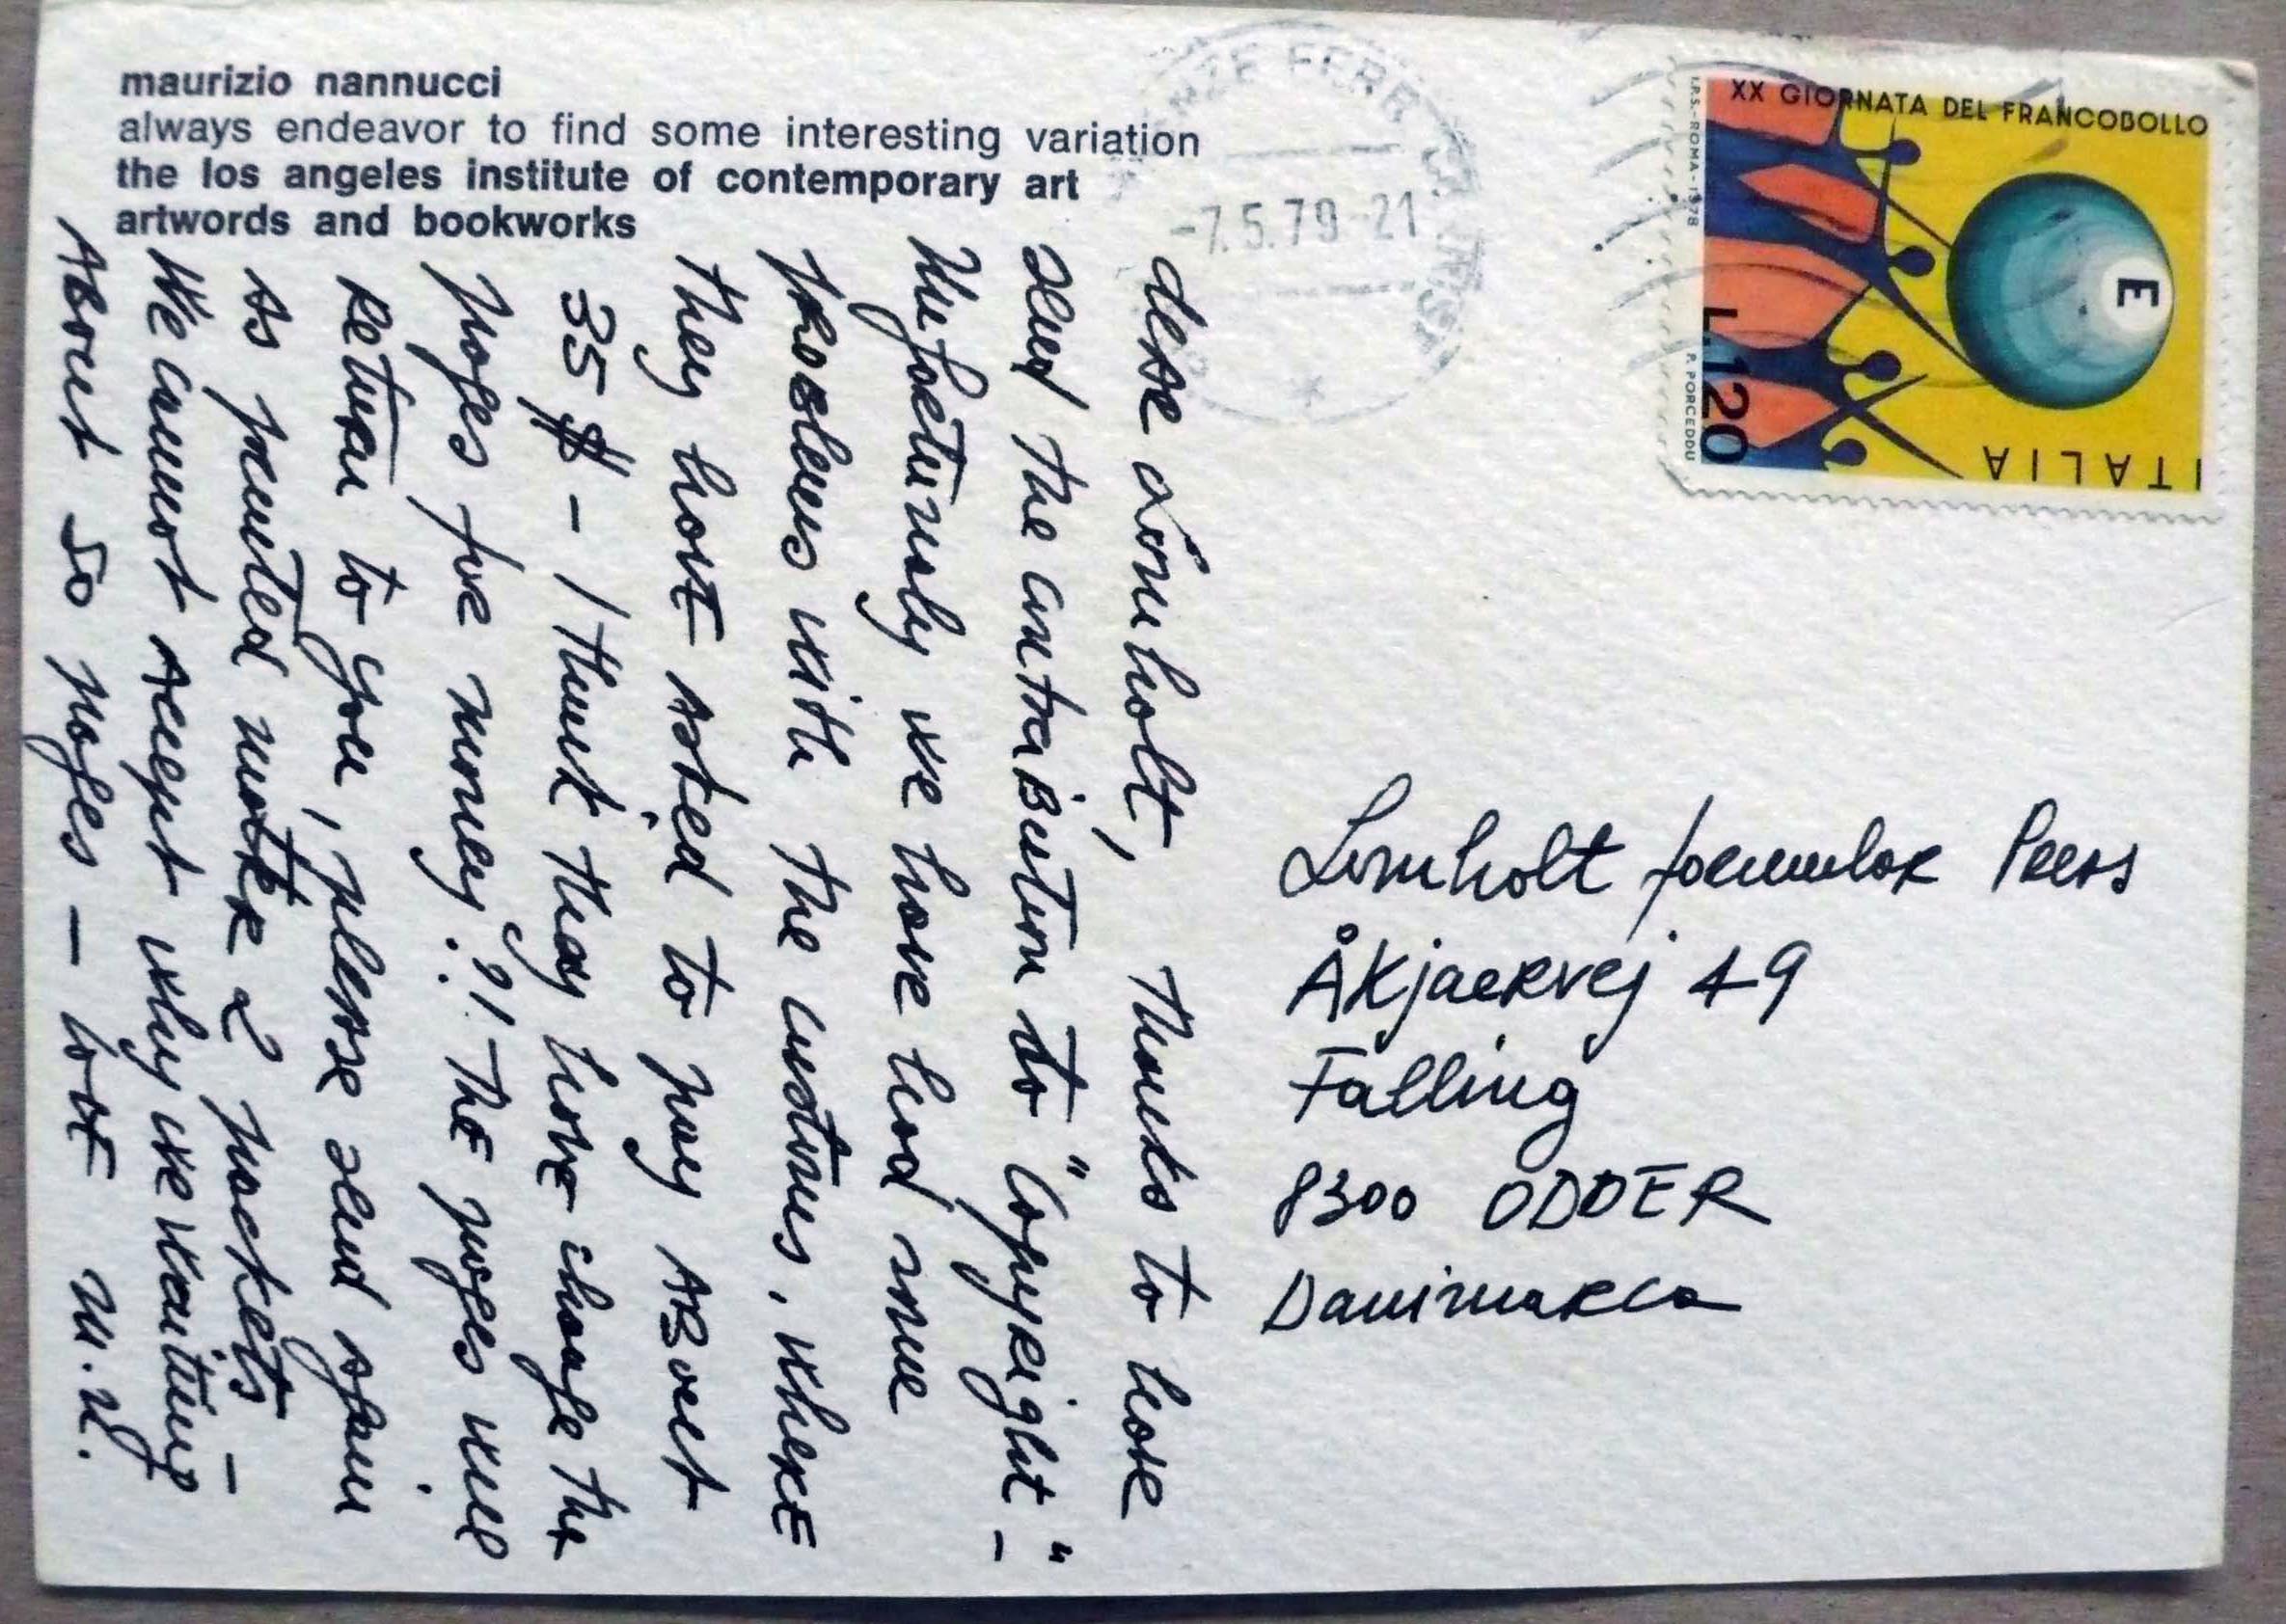 maurizio nannucci
always endeavor to find some interesting variation
the los angeles institute of contemporary art
artwords and bookworks
-7.5.79-21
XX GIORNATA DEL FRANCOBOLLO
I.P.S.-ROMA-1978
P. PORCEDDU
L.120
E
ITALIA
dear Lomholt, Thanks to have
send the contribution to "Copyright"-
Unfortunaly we have had some
problems with the customs, where
they have asked to pay about
35 $ - I think they have change the
pages for money?! The pages will
return to you, please send again
as printed matter 2 packets -
We cannot accept why we waiting
about 50 pages - love m.n.
Lomholt formular Press
Åkjaervej 49
Falling
8300 ODDER
Danimarca